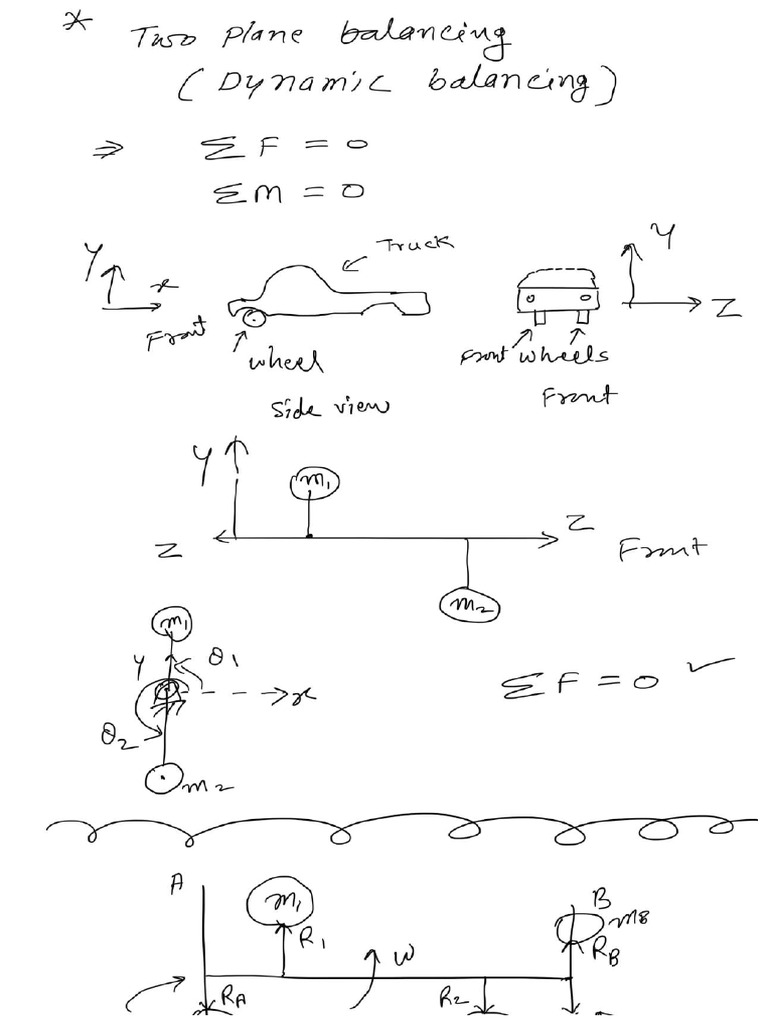 * Two plane balancing
(Dynamic balancing)
⇒ ΣF = 0
ΣM = 0
Y x Front
Truck
wheel
side view
Y Z
Front wheels
Front
Y m1
Z Z Front
m2
m1
Y θ1
x
θ2
m2
ΣF = 0 ✓
A m1 B
R1 ω mB
RB
RA R2